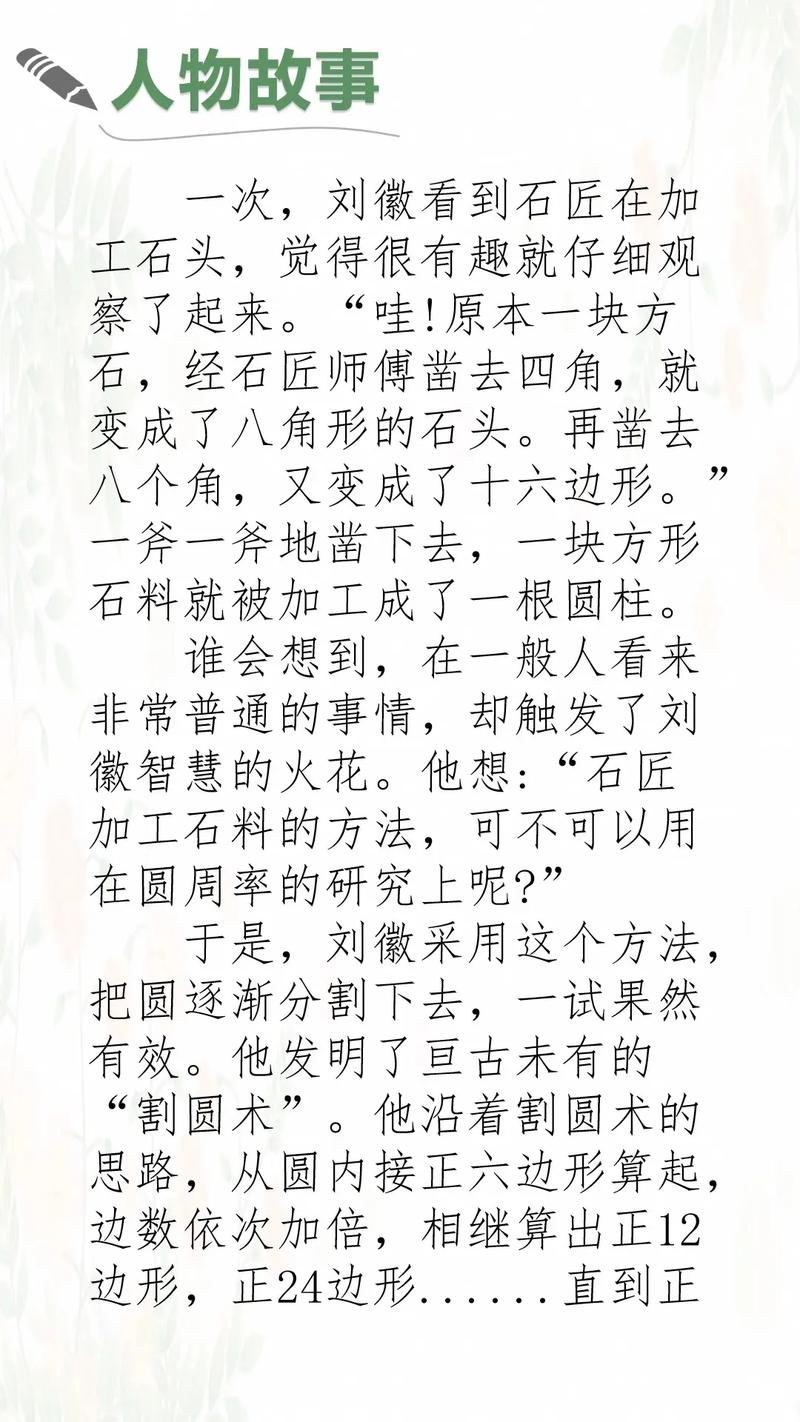 人物故事
一次，刘徽看到石匠在加
工石头，觉得很有趣就仔细观
察了起来。“哇!原本一块方
石，经石匠师傅凿去四角，就
变成了八角形的石头。再凿去
八个角，又变成了十六边形。”
一斧一斧地凿下去，一块方形
石料就被加工成了一根圆柱。
谁会想到，在一般人看来
非常普通的事情，却触发了刘
徽智慧的火花。他想:“石匠
加工石料的方法，可不可以用
在圆周率的研究上呢?”
于是，刘徽采用这个方法，
把圆逐渐分割下去，一试果然
有效。他发明了亘古未有的
“割圆术”。他沿着割圆术的
思路，从圆内接正六边形算起，
边数依次加倍，相继算出正12
边形，正24边形......直到正